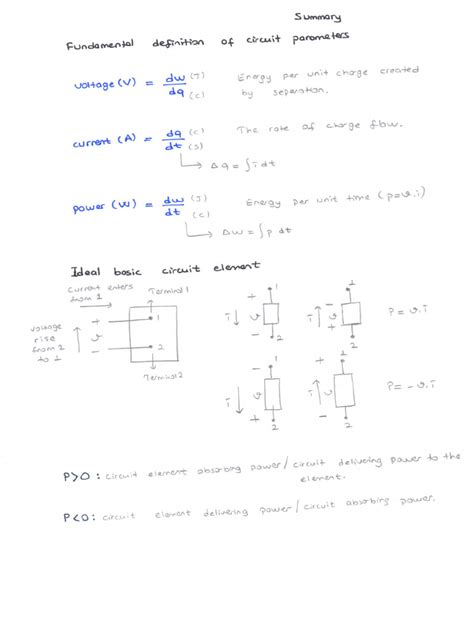 Summary
Fundamental definition of circuit parameters
voltage (V) = dw (J) / dq (C) Energy per unit charge created
by separation.
current (A) = dq (C) / dt (s) The rate of charge flow.
Δq = ∫i dt
power (W) = dw (J) / dt (C) Energy per unit time (p=v.i)
Δw = ∫p dt
Ideal basic circuit element
Current enters
from 1
Terminal 1
voltage
rise
from 2
to 1
+ 1
v
- 2
Terminal 2
1 + i v - 2
1 - i v + 2
P = v.i
1 + i v - 2
1 - i v + 2
P = - v.i
P>0 : circuit element absorbing power / circuit delivering power to the
element.
P<0 : circuit element delivering power / circuit absorbing power.